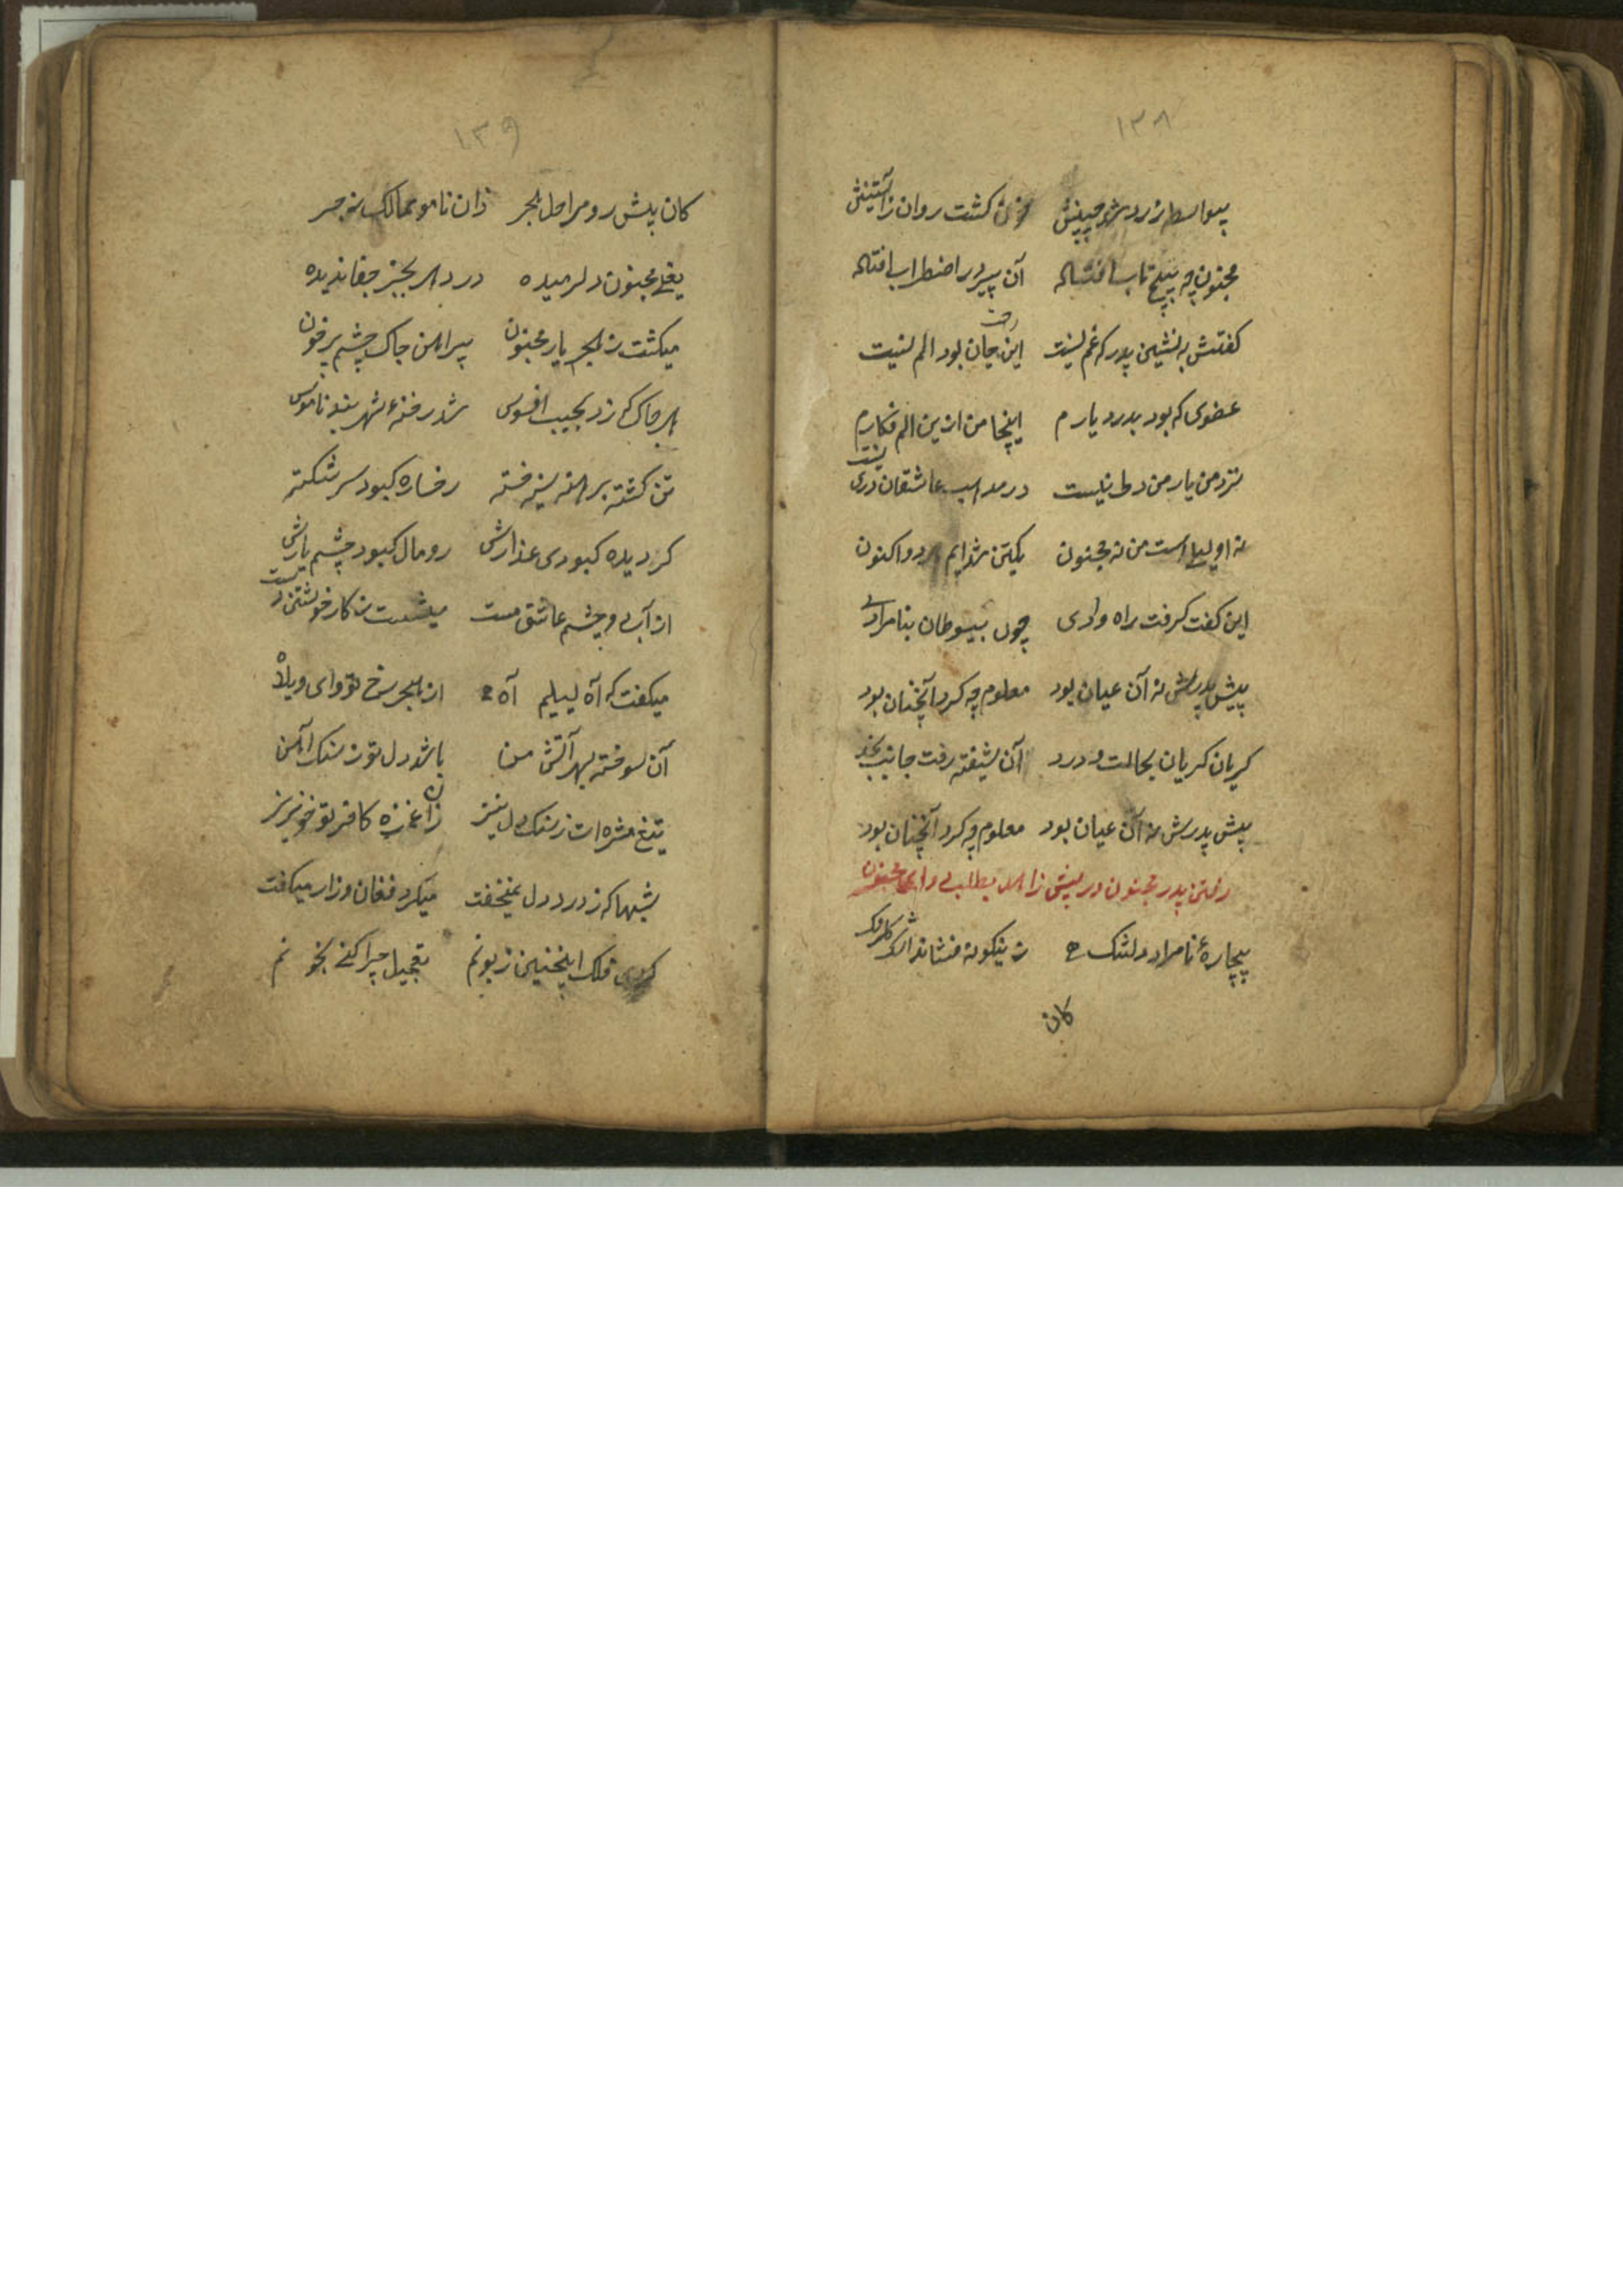 ۱۳۸
بیواسطه زرد شد جبینش خون کشت روان زآستینش
مجنون چه به پیچ تاب افتاد آن پیر در اضطراب افتاد
کفتش به نشین پدر که غم نیست این جان بود الم نیست
عضوی که بود بدرد یارم اینجا من ازین الم فکارم
نزد من یار من دوی نیست در مذهب عاشقان دوی نیست
نه او لیلی است من نه مجنون یکتن شده ایم هر دو اکنون
این کفت کرفت راه وادی چون بیوطنان بنامرادی
پیش پدرش نه آن عیان بود معلوم چه کرد آنچنان بود
کریان کریان بحالت درد آن شیفته رفت جانب نجد
پیش پدرش نه آن عیان بود معلوم چه کرد آنچنان بود
رفتن پدر مجنون در پیش زاهد بطلب دوای مجنون
بیچارهٔ نامراد دلتنک زینکونه فشاند اشک کلرنک
کان
۱۳۹
کان پیش رو مراحل هجر زان نامو ممالک زجر
یعنی مجنون دلرمیده در دهر بجز جفا ندیده
میکشت ز هجر یار مجنون پیراهن چاک چشم پر خون
هر چاک که زد بجیب افسوس شد رخنهٔ شهر بند ناموس
تن کشته برهنه سینه خسته رخساره کبود سر شکسته
کردیده کبودی عذارش رومال کبود چشم یارش
از آب دو چشم عاشق مست میشست ز کار خویشتن دست
میکفت که آه لیلیم آه ۲ از هجر رخ تو وای ویلاه
آن سوخته بهر آتش من باشد دل تو ز سنک آهن
تیغ مژه ات ز سنک دل تیز زان غمزه کافر تو خونریز
شبها که ز درد دل نمیخفت میکرد فغان و زار میکفت
کردی فلک اینچنین زبونم تعجیل چرا کنی بخونم